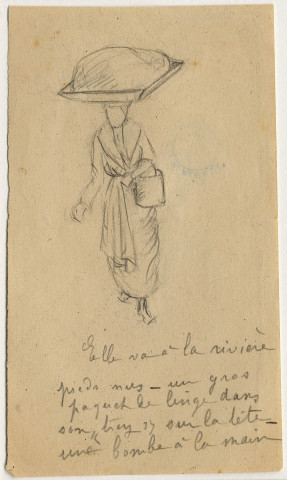 Elle va à la rivière
pieds nus – un gros
paquet de linge dans
son "trey" sur la tête –
une bombe à la main